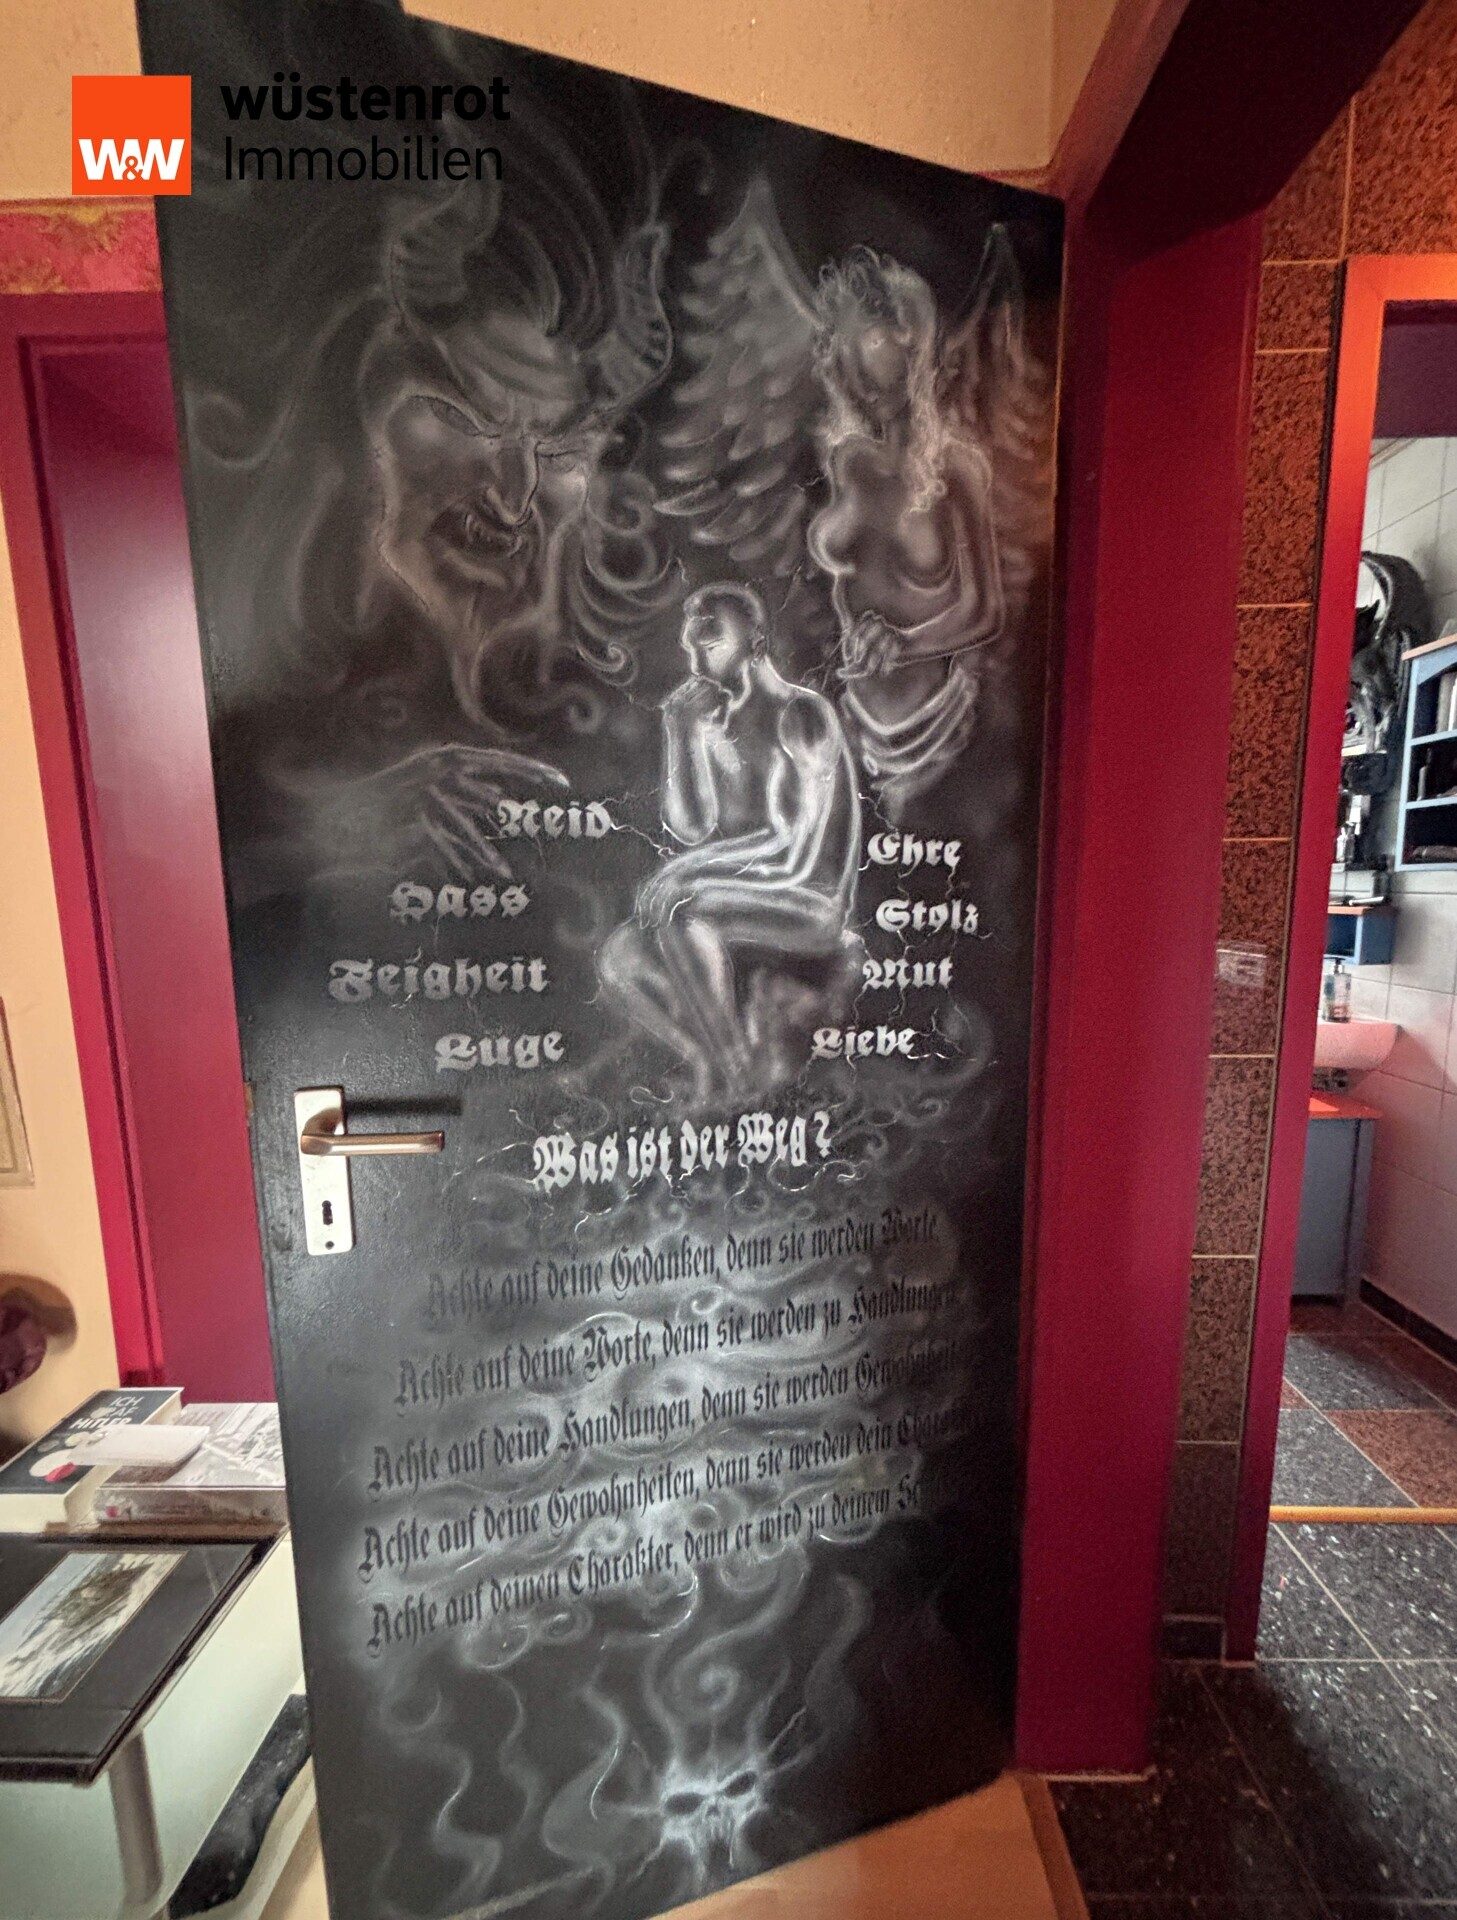 wüstenrot
Immobilien
W&W
Neid
Hass
Feigheit
Lüge
Ehre
Stolz
Mut
Liebe
Was ist der Weg?
Achte auf deine Gedanken, denn sie werden Worte.
Achte auf deine Worte, denn sie werden zu Handlungen.
Achte auf deine Handlungen, denn sie werden
Achte auf deine Gewohnheiten, denn sie werden dein
Achte auf deinen Charakter, denn er wird zu deinem
ICH
HITLER